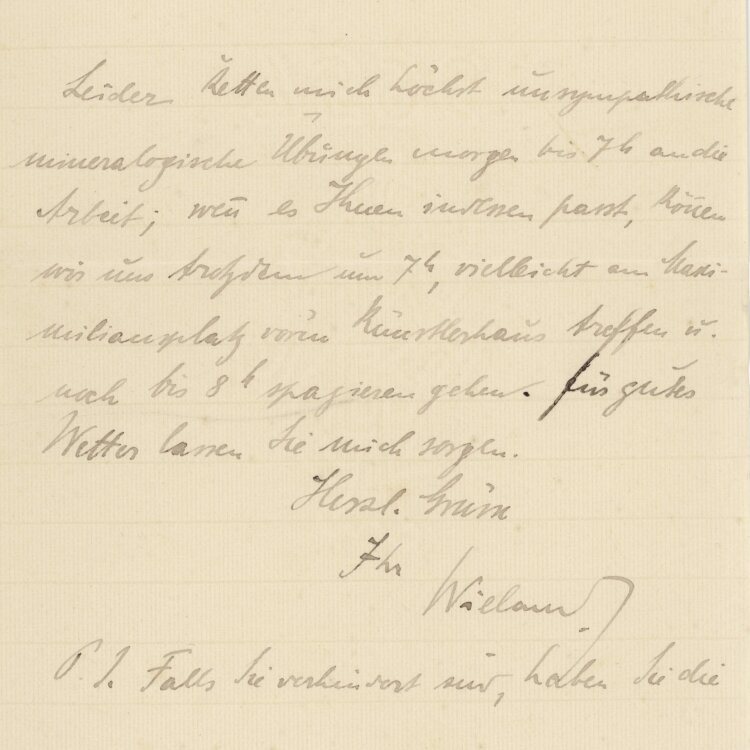 Leider ketten mich höchst unsympathische
mineralogische Übungen morgen bis 7 h an die
Arbeit; weñ es Ihnen indessen passt, köñen
wir uns trotzdem um 7 h, vielleicht am Maxi-
miliansplatz vorm Künstlerhaus treffen u.
noch bis 8 h spazieren gehen. Für gutes
Wetter lassen Sie mich sorgen.
Herzl. Gruss
Ihr
Wieland.
P. S. Falls Sie verhindert sind, haben Sie die